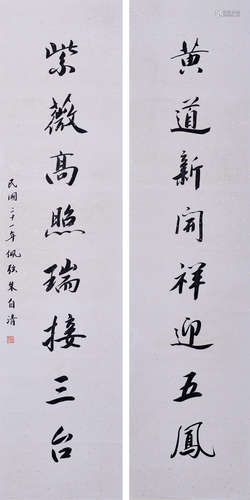 黄道新開祥迎五鳳
紫薇高照瑞接三台
民國二十一年佩弦朱自清